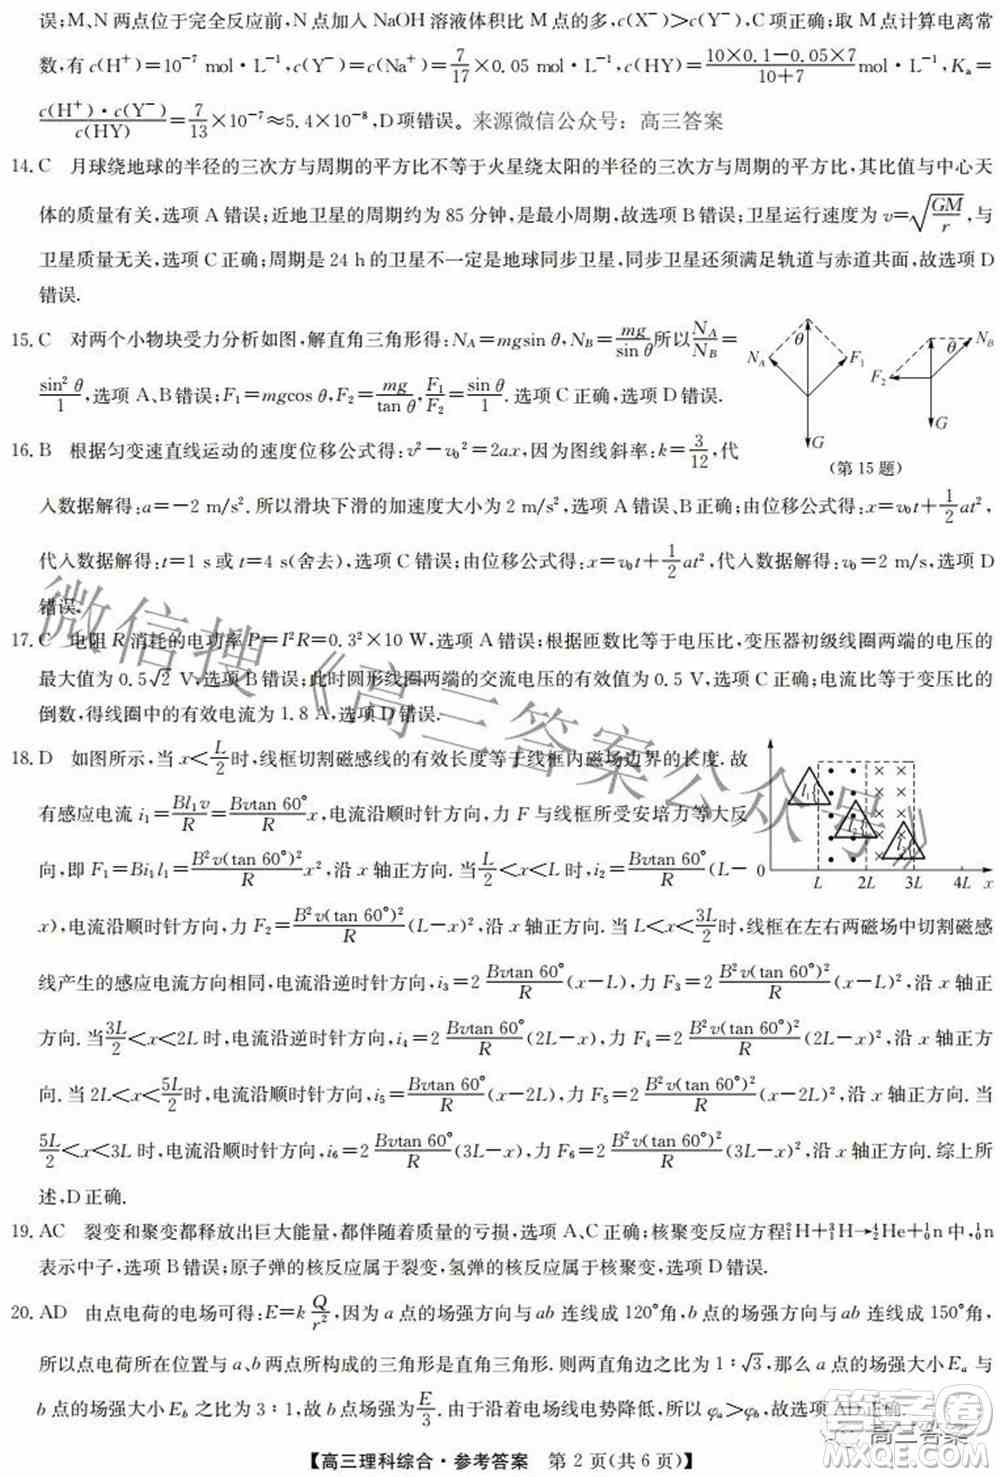 误;M、N两点位于完全反应前,N点加入NaOH溶液体积比M点的多,c(X⁻)>c(Y⁻),C项正确;取M点计算电离常
数,有c(H⁺)=10⁻⁷ mol·L⁻¹,c(Y⁻)=c(Na⁺)=7/17×0.05 mol·L⁻¹,c(HY)=(10×0.1−0.05×7)/(10+7) mol·L⁻¹,Kₐ=
c(H⁺)·c(Y⁻)/c(HY)=7/13×10⁻⁷≈5.4×10⁻⁸,D项错误。 来源微信公众号:高三答案
14.C 月球绕地球的半径的三次方与周期的平方比不等于火星绕太阳的半径的三次方与周期的平方比,其比值与中心天
体的质量有关,选项A错误;近地卫星的周期约为85分钟,是最小周期,故选项B错误;卫星运行速度为v=√(GM/r),与
卫星质量无关,选项C正确;周期是24 h的卫星不一定是地球同步卫星,同步卫星还须满足轨道与赤道共面,故选项D
错误.
15.C 对两个小物块受力分析如图,解直角三角形得:N_A=mgsin θ,N_B=mg/sin θ所以N_A/N_B=
sin² θ/1,选项A、B错误;F₁=mgcos θ,F₂=mg/tan θ,F₁/F₂=sin θ/1.选项C正确,选项D错误.
N_A θ F₁ G F₂ θ N_B G
(第15题)
16.B 根据匀变速直线运动的速度位移公式得:v²−v₀²=2ax,因为图线斜率:k=3/12,代
入数据解得:a=−2 m/s².所以滑块下滑的加速度大小为2 m/s²,选项A错误、B正确;由位移公式得:x=v₀t+1/2at²,
代入数据解得:t=1 s或t=4 s(舍去),选项C错误;由位移公式得:x=v₀t+1/2at²,代入数据解得:v₀=2 m/s,选项D
错误.
17.C 电阻R消耗的电功率P=I²R=0.3²×10 W,选项A错误;根据匝数比等于电压比,变压器初级线圈两端的电压的
最大值为0.5√2 V,选项B错误;此时圆形线圈两端的交流电压的有效值为0.5 V,选项C正确;电流比等于匝数比的
倒数,得线圈中的有效电流为1.8 A,选项D错误.
18.D 如图所示,当x<L/2时,线框切割磁感线的有效长度等于线框内磁场边界的长度.故
有感应电流i₁=Bl₁v/R=Bvtan 60°/R x,电流沿顺时针方向,力F与线框所受安培力等大反
向,即F₁=Bi₁l₁=B²v(tan 60°)²/R x²,沿x轴正方向.当L/2<x<L时,i₂=Bvtan 60°/R(L−
x),电流沿顺时针方向,力F₂=B²v(tan 60°)²/R(L−x)²,沿x轴正方向.当L<x<3L/2时,线框在左右两磁场中切割磁感
线产生的感应电流方向相同,电流沿逆时针方向,i₃=2 Bvtan 60°/R(x−L),力F₃=2 B²v(tan 60°)²/R(x−L)²,沿x轴正
方向.当3L/2<x<2L时,电流沿逆时针方向,i₄=2 Bvtan 60°/R(2L−x),力F₄=2 B²v(tan 60°)²/R(2L−x)²,沿x轴正方
向.当2L<x<5L/2时,电流沿顺时针方向,i₅=2 Bvtan 60°/R(x−2L),力F₅=2 B²v(tan 60°)²/R(x−2L)²,沿x轴正方向.当
5L/2<x<3L时,电流沿顺时针方向,i₆=2 Bvtan 60°/R(3L−x),力F₆=2 B²v(tan 60°)²/R(3L−x)²,沿x轴正方向.综上所
述,D正确.
0 L 2L 3L 4L x
19.AC 裂变和聚变都释放出巨大能量,都伴随着质量的亏损,选项A、C正确;核聚变反应方程²₁H+³₁H→⁴₂He+¹₀n中,¹₀n
表示中子,选项B错误;原子弹的核反应属于裂变,氢弹的核反应属于核聚变,选项D错误.
20.AD 由点电荷的电场可得:E=k Q/r²,因为a点的场强方向与ab连线成120°角,b点的场强方向与ab连线成150°角,
所以点电荷所在位置与a、b两点所构成的三角形是直角三角形.则两直角边之比为1∶√3,那么a点的场强大小Eₐ与
b点的场强大小E_b之比为3∶1,故b点的场强为E/3.由于沿着电场线电势降低,所以φₐ>φ_b,故选项AD正确.
【高三理科综合·参考答案 第2页(共6页)】
微信搜《高三答案公众号》
答案圈
高三答案